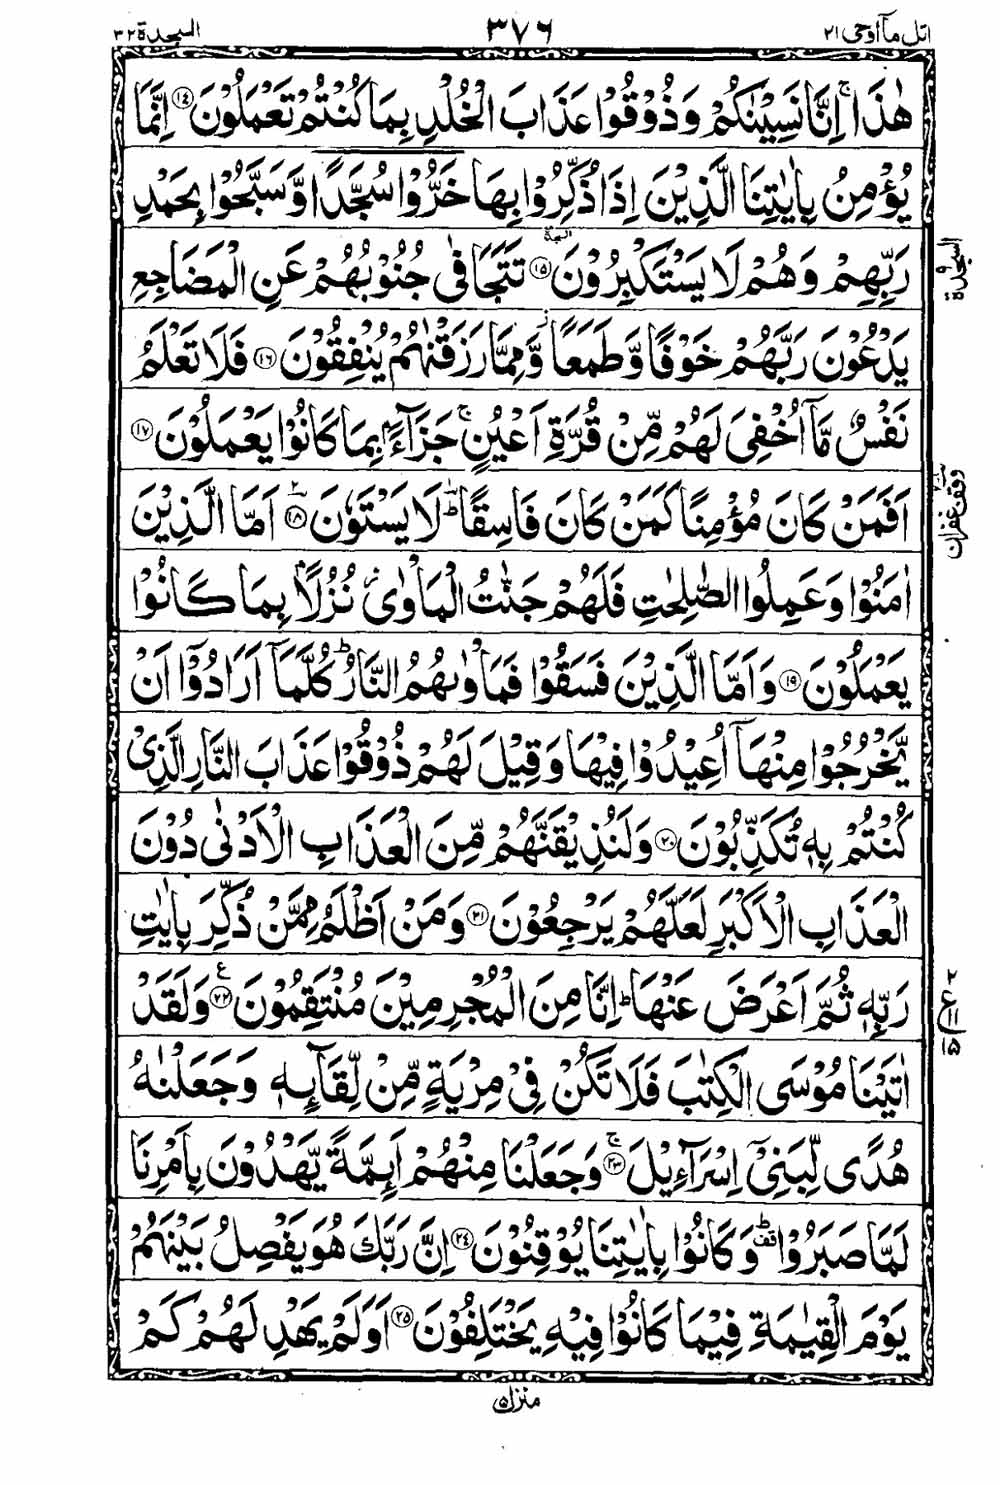 اتل مآ اوحی ۲۱ ۳۷۶ السجدة ۳۲
هٰذَا ۚ اِنَّا نَسِيْنٰكُمْ وَذُوْقُوْا عَذَابَ الْخُلْدِ بِمَا كُنْتُمْ تَعْمَلُوْنَ ﴿۱۴﴾ اِنَّمَا
يُؤْمِنُ بِاٰيٰتِنَا الَّذِيْنَ اِذَا ذُكِّرُوْا بِهَا خَرُّوْا سُجَّدًا وَّسَبَّحُوْا بِحَمْدِ
رَبِّهِمْ وَهُمْ لَا يَسْتَكْبِرُوْنَ ﴿۱۵﴾ السجدة تَتَجَافٰى جُنُوْبُهُمْ عَنِ الْمَضَاجِعِ
السجدة
يَدْعُوْنَ رَبَّهُمْ خَوْفًا وَّطَمَعًا ؗ وَّمِمَّا رَزَقْنٰهُمْ يُنْفِقُوْنَ ﴿۱۶﴾ فَلَا تَعْلَمُ
نَفْسٌ مَّاۤ اُخْفِىَ لَهُمْ مِّنْ قُرَّةِ اَعْيُنٍ ۚ جَزَآءًۢ بِمَا كَانُوْا يَعْمَلُوْنَ ﴿۱۷﴾
اَفَمَنْ كَانَ مُؤْمِنًا كَمَنْ كَانَ فَاسِقًا ؕ لَا يَسْتَوٗنَ ﴿۱۸﴾ اَمَّا الَّذِيْنَ
وقف غفران
اٰمَنُوْا وَعَمِلُوا الصّٰلِحٰتِ فَلَهُمْ جَنّٰتُ الْمَاْوٰى ؗ نُزُلًاۢ بِمَا كَانُوْا
يَعْمَلُوْنَ ﴿۱۹﴾ وَاَمَّا الَّذِيْنَ فَسَقُوْا فَمَاْوٰىهُمُ النَّارُ ؕ كُلَّمَاۤ اَرَادُوْۤا اَنْ
يَّخْرُجُوْا مِنْهَاۤ اُعِيْدُوْا فِيْهَا وَقِيْلَ لَهُمْ ذُوْقُوْا عَذَابَ النَّارِ الَّذِىْ
كُنْتُمْ بِهٖ تُكَذِّبُوْنَ ﴿۲۰﴾ وَلَنُذِيْقَنَّهُمْ مِّنَ الْعَذَابِ الْاَدْنٰى دُوْنَ
الْعَذَابِ الْاَكْبَرِ لَعَلَّهُمْ يَرْجِعُوْنَ ﴿۲۱﴾ وَمَنْ اَظْلَمُ مِمَّنْ ذُكِّرَ بِاٰيٰتِ
رَبِّهٖ ثُمَّ اَعْرَضَ عَنْهَا ؕ اِنَّا مِنَ الْمُجْرِمِيْنَ مُنْتَقِمُوْنَ ﴿۲۲﴾ ع وَلَقَدْ
۲ ع ۱۱ ۱۵
اٰتَيْنَا مُوْسَى الْكِتٰبَ فَلَا تَكُنْ فِىْ مِرْيَةٍ مِّنْ لِّقَآئِهٖ وَجَعَلْنٰهُ
هُدًى لِّبَنِىْۤ اِسْرَآءِيْلَ ﴿۲۳﴾ ۚ وَجَعَلْنَا مِنْهُمْ اَئِمَّةً يَّهْدُوْنَ بِاَمْرِنَا
لَمَّا صَبَرُوْا ؕ قف وَكَانُوْا بِاٰيٰتِنَا يُوْقِنُوْنَ ﴿۲۴﴾ اِنَّ رَبَّكَ هُوَ يَفْصِلُ بَيْنَهُمْ
يَوْمَ الْقِيٰمَةِ فِيْمَا كَانُوْا فِيْهِ يَخْتَلِفُوْنَ ﴿۲۵﴾ اَوَلَمْ يَهْدِ لَهُمْ كَمْ
منزل ۵